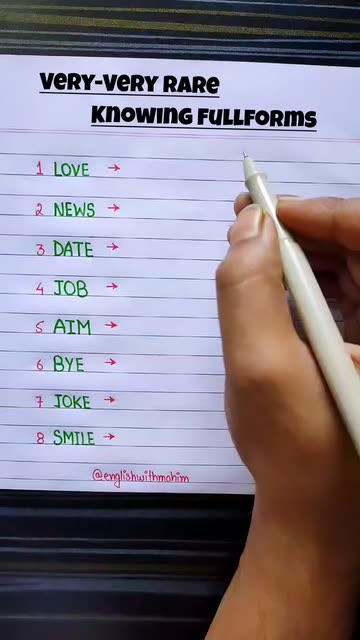 VERY-VERY RARE
KNOWING FULLFORMS
1 LOVE →
2 NEWS →
3 DATE →
4 JOB →
5 AIM →
6 BYE →
7 JOKE →
8 SMILE →
@englishwithmohim